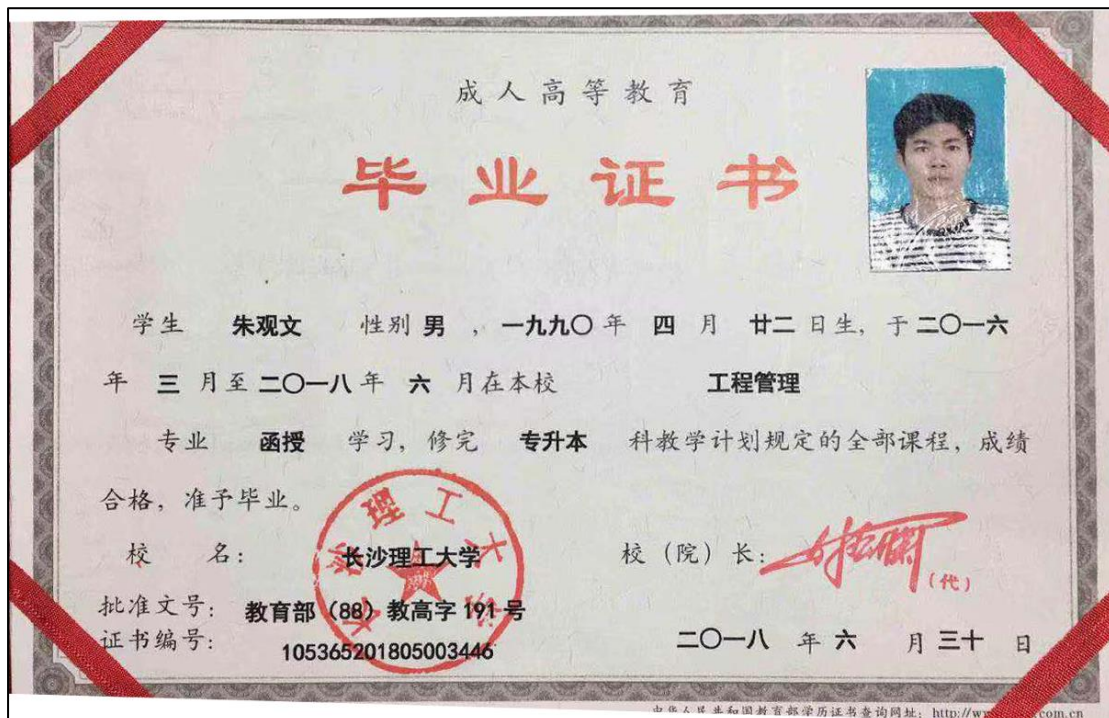 成人高等教育
毕业证书
学生 朱观文 性别 男 ，一九九〇 年 四 月 廿二 日生，于 二〇一六
年 三 月至 二〇一八 年 六 月在本校 工程管理
专业 函授 学习，修完 专升本 科教学计划规定的全部课程，成绩
合格，准予毕业。
校 名： 长沙理工大学 校（院）长：
（代）
长沙理工大学
批准文号： 教育部（88）教高字 191 号
证书编号： 105365201805003446 二〇一八 年 六 月 三十 日
中华人民共和国教育部学历证书查询网址：http://w com.cn